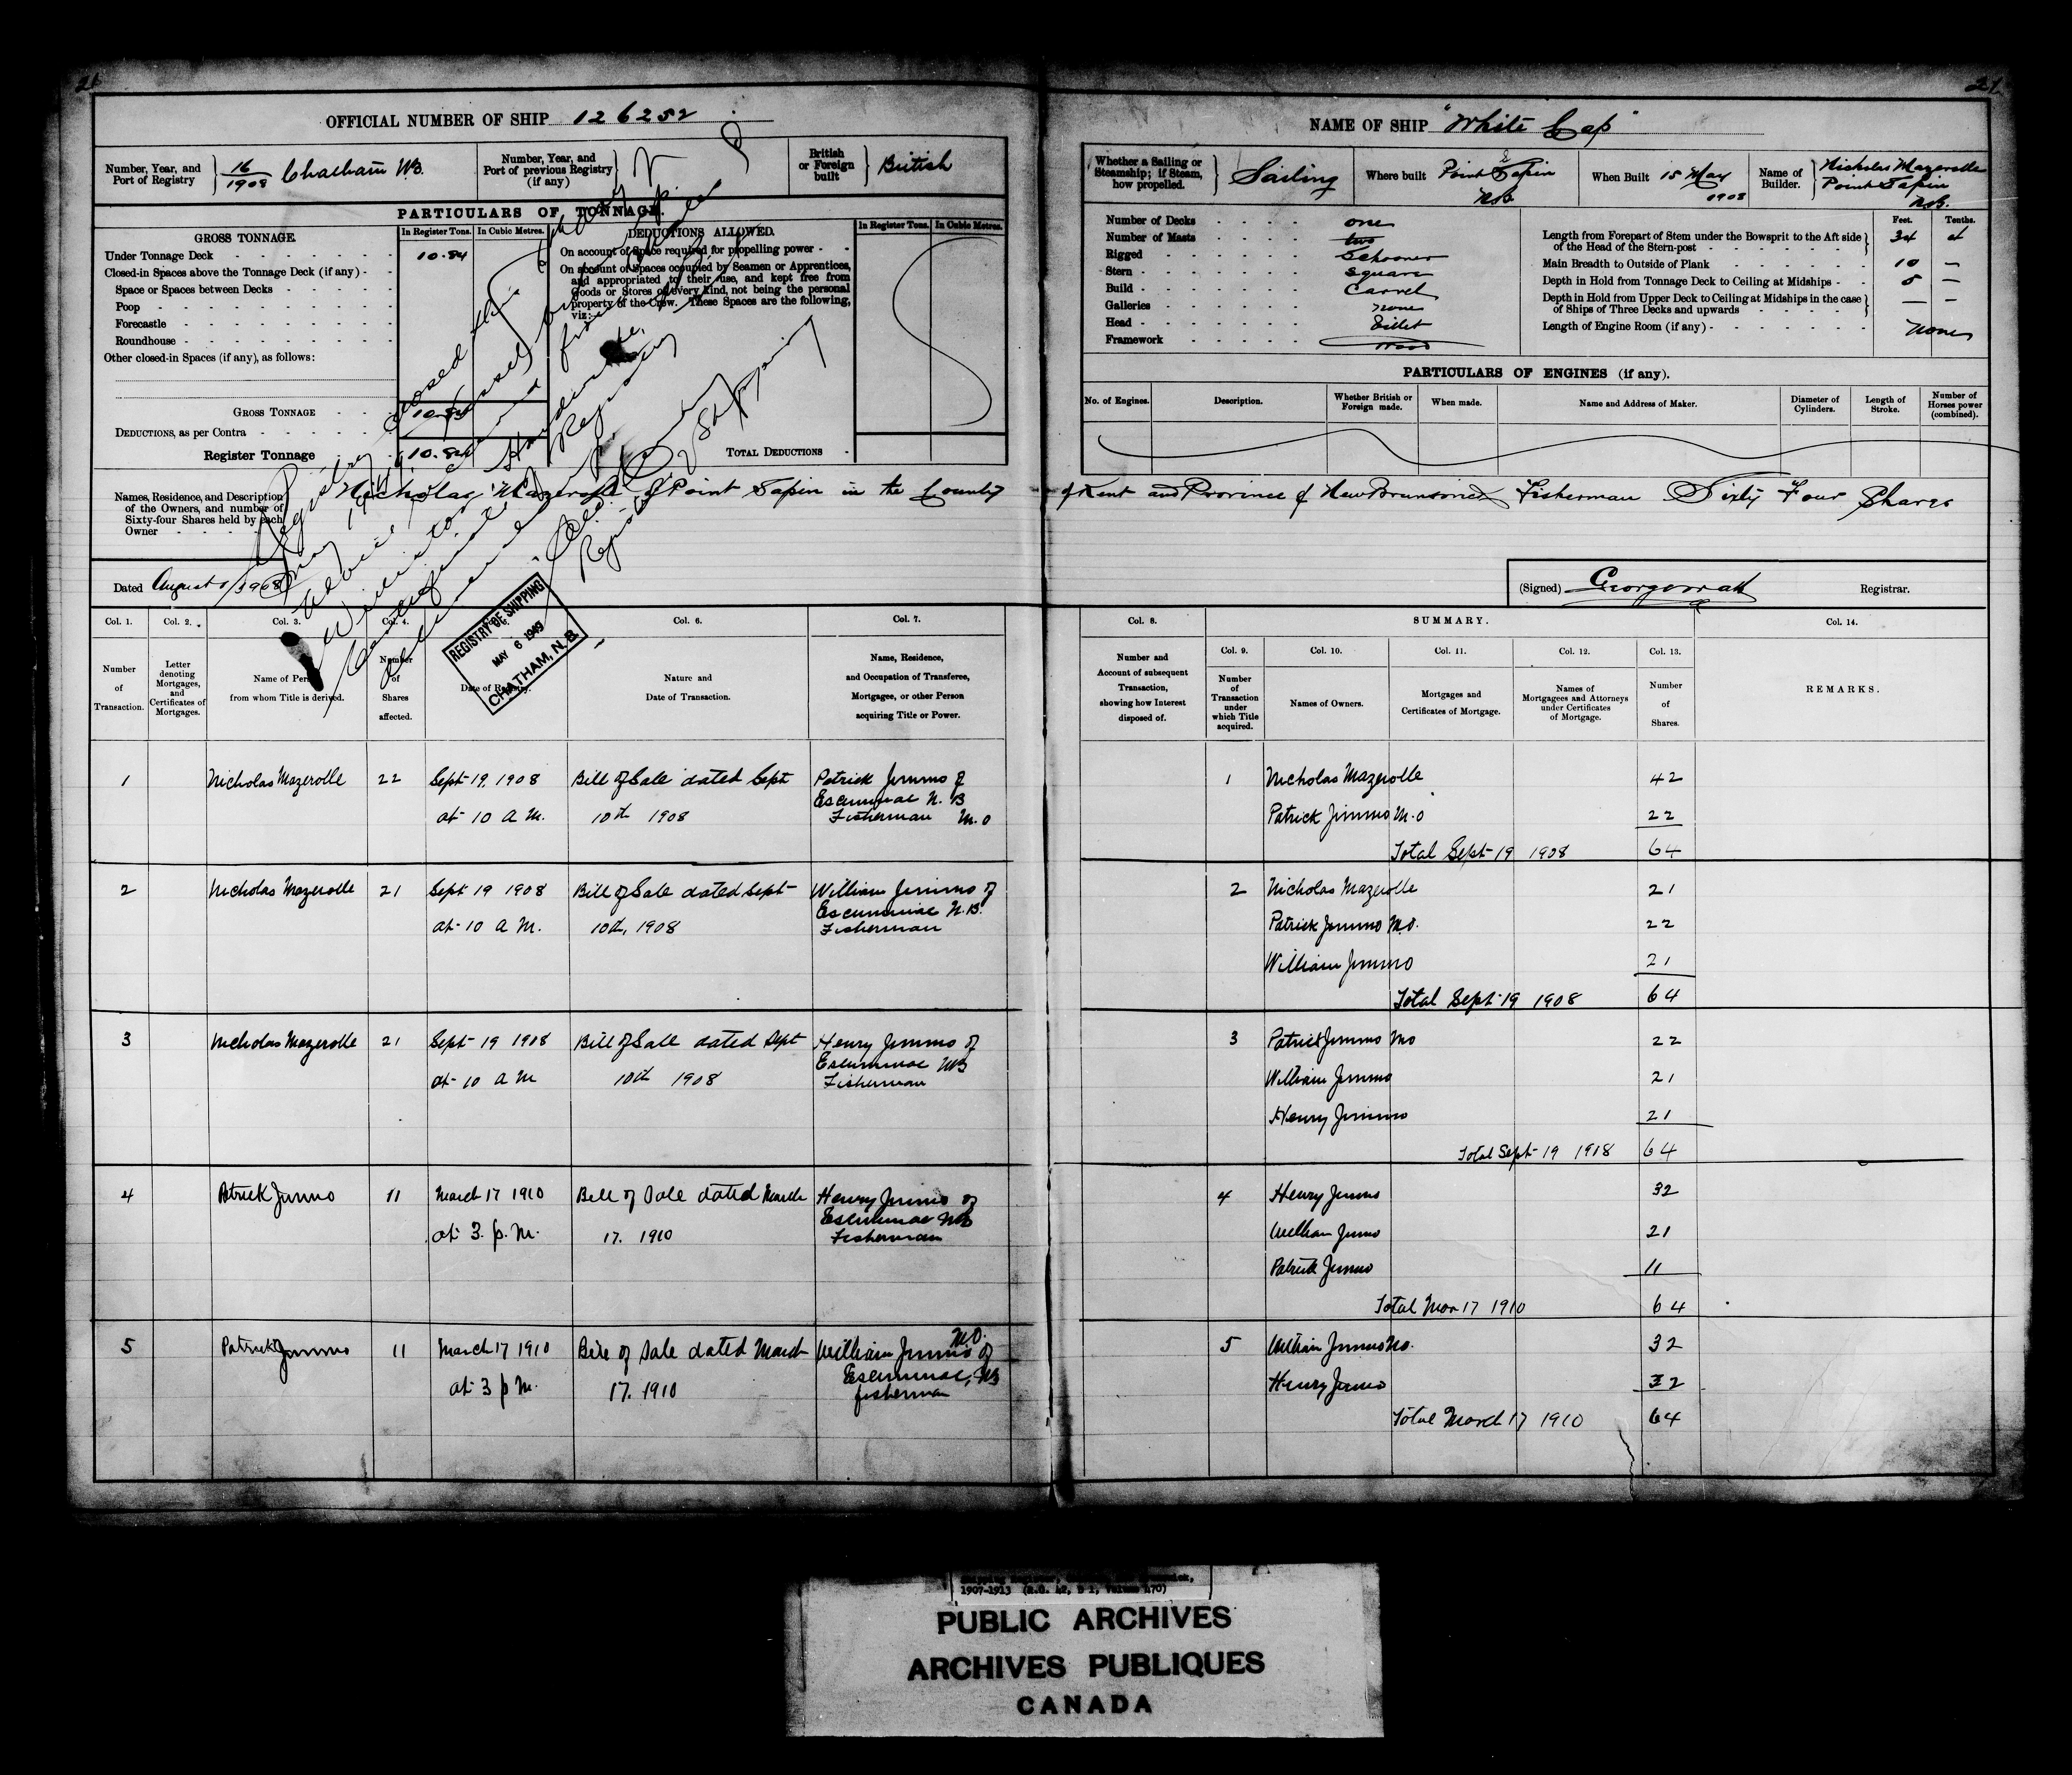 26
27
OFFICIAL NUMBER OF SHIP 126252
NAME OF SHIP "White Cap"
Number, Year, and Port of Registry 16/1908 Chatham NB.
Number, Year, and Port of previous Registry (if any)
British or Foreign built British
PARTICULARS OF TONNAGE.
GROSS TONNAGE.
In Register Tons. In Cubic Metres.
Under Tonnage Deck 10.84
Closed-in Spaces above the Tonnage Deck (if any)
Space or Spaces between Decks
Poop
Forecastle
Roundhouse
Other closed-in Spaces (if any), as follows:
GROSS TONNAGE 10.84
DEDUCTIONS, as per Contra
Register Tonnage 10.84
DEDUCTIONS ALLOWED.
In Register Tons. In Cubic Metres.
On account of Space required for propelling power
On account of Spaces occupied by Seamen or Apprentices,
and appropriated to their use, and kept free from
Goods or Stores of every kind, not being the personal
property of the Crew. These Spaces are the following,
viz:
TOTAL DEDUCTIONS
Whether a Sailing or Steamship; if Steam, how propelled. Sailing
Where built Point Sapin NB
When Built 15 May 1908
Name of Builder. Nicholas Mazerolle Point Sapin NB.
Number of Decks one
Number of Masts two
Rigged Schooner
Stern Square
Build Carvel
Galleries none
Head Billet
Framework Wood
Feet. Tenths.
Length from Forepart of Stem under the Bowsprit to the Aft side of the Head of the Stern-post 34
Main Breadth to Outside of Plank 10 —
Depth in Hold from Tonnage Deck to Ceiling at Midships 5 —
Depth in Hold from Upper Deck to Ceiling at Midships in the case of Ships of Three Decks and upwards — —
Length of Engine Room (if any) none
PARTICULARS OF ENGINES (if any).
No. of Engines.
Description.
Whether British or Foreign made.
When made.
Name and Address of Maker.
Diameter of Cylinders.
Length of Stroke.
Number of Horses power (combined).
Names, Residence, and Description
of the Owners, and number of
Sixty-four Shares held by each
Owner
Nicholas Mazerolle of Point Sapin in the County of Kent and Province of New Brunswick Fisherman Sixty Four Shares
Dated August 1908
(Signed) Registrar.
Registry closed this
Vessel
Certificate
Registry
Registrar of Shipping
REGISTRY OF SHIPPING
MAY 6 1949
CHATHAM, N. B.
Col. 1. Number of Transaction.
Col. 2. Letter denoting Mortgages, and Certificates of Mortgages.
Col. 3. Name of Person from whom Title is derived.
Col. 4. Number of Shares affected.
Date of Registry.
Col. 6. Nature and Date of Transaction.
Col. 7. Name, Residence, and Occupation of Transferee, Mortgagee, or other Person acquiring Title or Power.
Col. 8. Number and Account of subsequent Transaction, showing how Interest disposed of.
SUMMARY.
Col. 9. Number of Transaction under which Title acquired.
Col. 10. Names of Owners.
Col. 11. Mortgages and Certificates of Mortgage.
Col. 12. Names of Mortgagees and Attorneys under Certificates of Mortgage.
Col. 13. Number of Shares.
Col. 14. REMARKS.
1 Nicholas Mazerolle 22 Sept 19, 1908 Bill of Sale dated Sept Patrick Jimmo of
Escuminac N. B
at 10 A M. 10th 1908 Fisherman M.O
1 Nicholas Mazerolle 42
Patrick Jimmo M.O 22
Total Sept 19 1908 64
2 Nicholas Mazerolle 21 Sept 19 1908 Bill of Sale dated Sept William Jimmo of
Escuminac N.B.
at 10 A M. 10th, 1908 Fisherman
2 Nicholas Mazerolle 21
Patrick Jimmo M.O. 22
William Jimmo 21
Total Sept 19 1908 64
3 Nicholas Mazerolle 21 Sept 19 1908 Bill of Sale dated Sept Henry Jimmo of
Escuminac NB
at 10 A M 10th 1908 Fisherman
3 Patrick Jimmo MO 22
William Jimmo 21
Henry Jimmo 21
Total Sept 19 1908 64
4 Patrick Jimmo 11 March 17 1910 Bill of Sale dated March Henry Jimmo of
Escuminac NB
at 3. p. M. 17. 1910 Fisherman
4 Henry Jimmo 32
William Jimmo 21
Patrick Jimmo 11
Total Mar 17 1910 64
5 Patrick Jimmo 11 March 17 1910 Bill of Sale dated March William Jimmo M.O. of
Escuminac, NB
at 3 p M. 17. 1910 fisherman
5 William Jimmo MO. 32
Henry Jimmo 32
Total March 17 1910 64
1907-1913 (R.G. 42, B 1, Volume 470)
PUBLIC ARCHIVES
ARCHIVES PUBLIQUES
CANADA